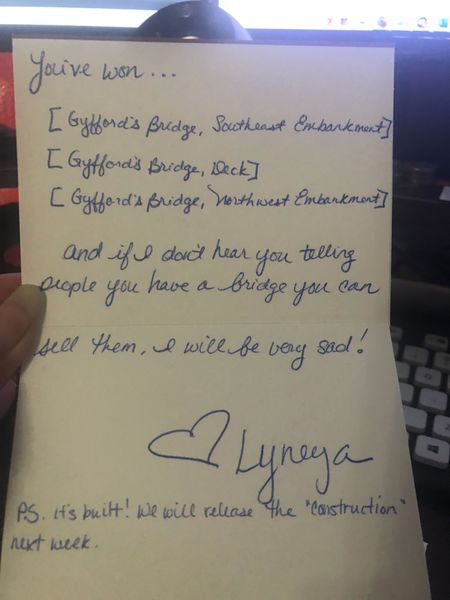 You've won...
[Gyfford's Bridge, Southeast Embankment]
[Gyfford's Bridge, Deck]
[Gyfford's Bridge, Northwest Embankment]
and if I don't hear you telling
people you have a bridge you can
sell them, I will be very sad!
♡ Lyneya
P.S. it's built! We will release the "construction"
next week.